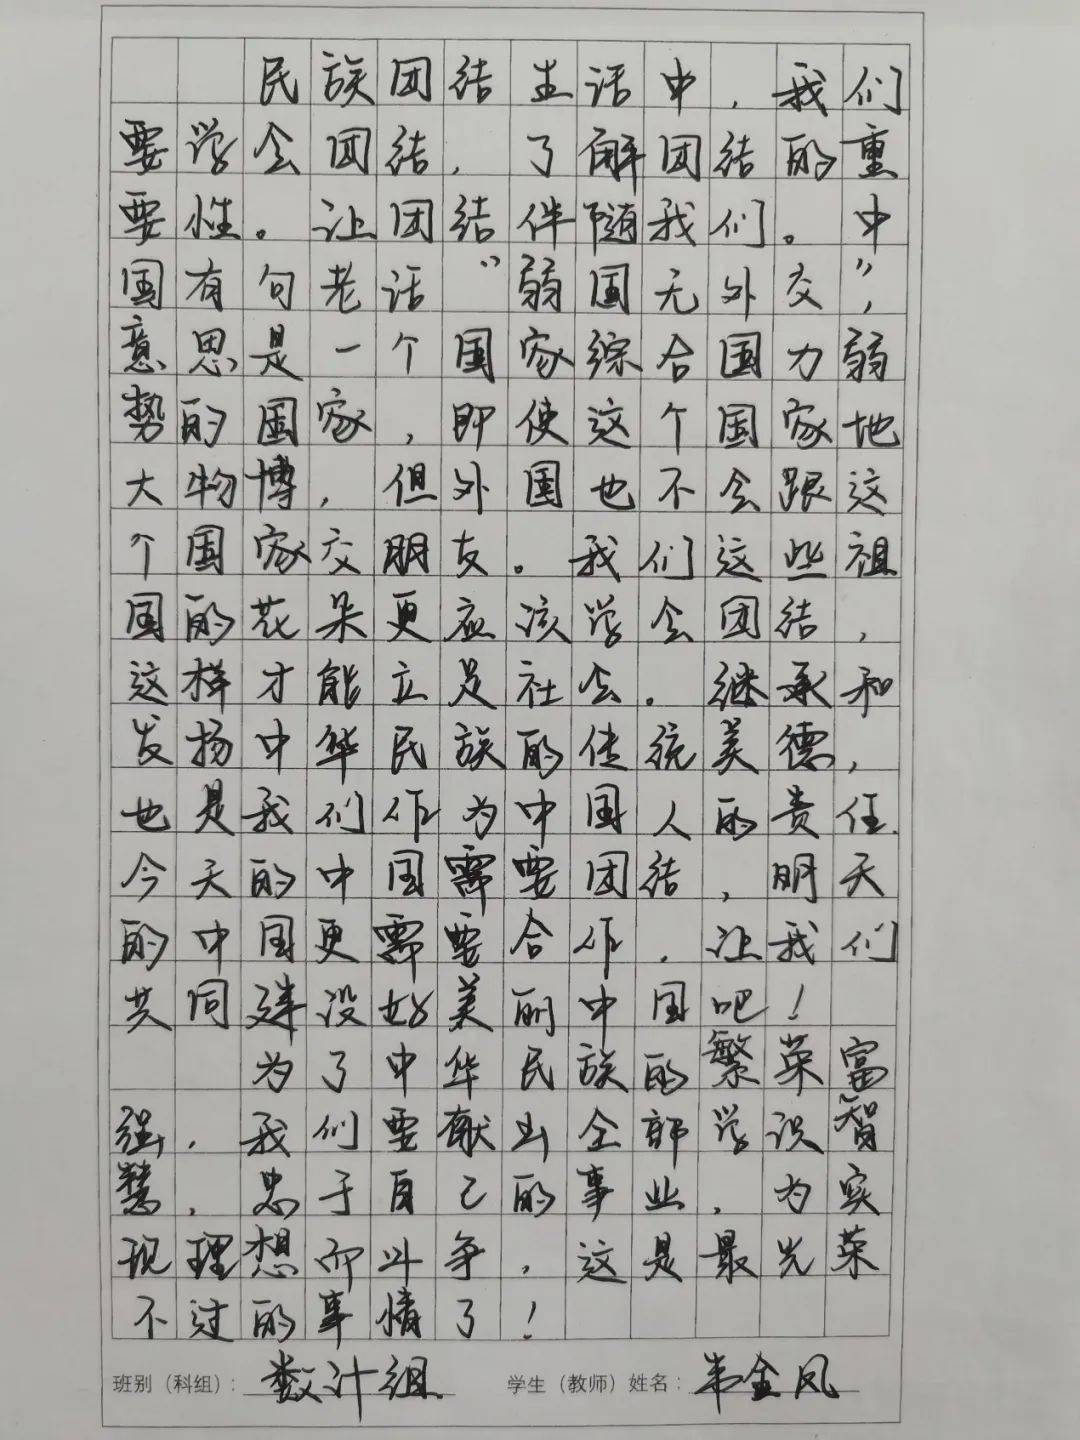 民族团结生活中，我们
要学会团结，了解团结的重
要性。让团结伴随我们。中
国有句老话“弱国无外交”，
意思是一个国家综合国力弱
势的国家，即使这个国家地
大物博，但外国也不会跟这
个国家交朋友。我们这些祖
国的花朵更应该学会团结，
这样才能立足社会。继承和
发扬中华民族的传统美德，
也是我们作为中国人的责任.
今天的中国需要团结，明天
的中国更需要合作，让我们
共同建设好美丽中国吧！
为了中华民族的繁荣富
强，我们要献出全部学识智
慧，忠于自己的事业，为实
现理想而斗争，这是最光荣
不过的事情了！
班别（科组）：数计组 学生（教师）姓名：韦金凤